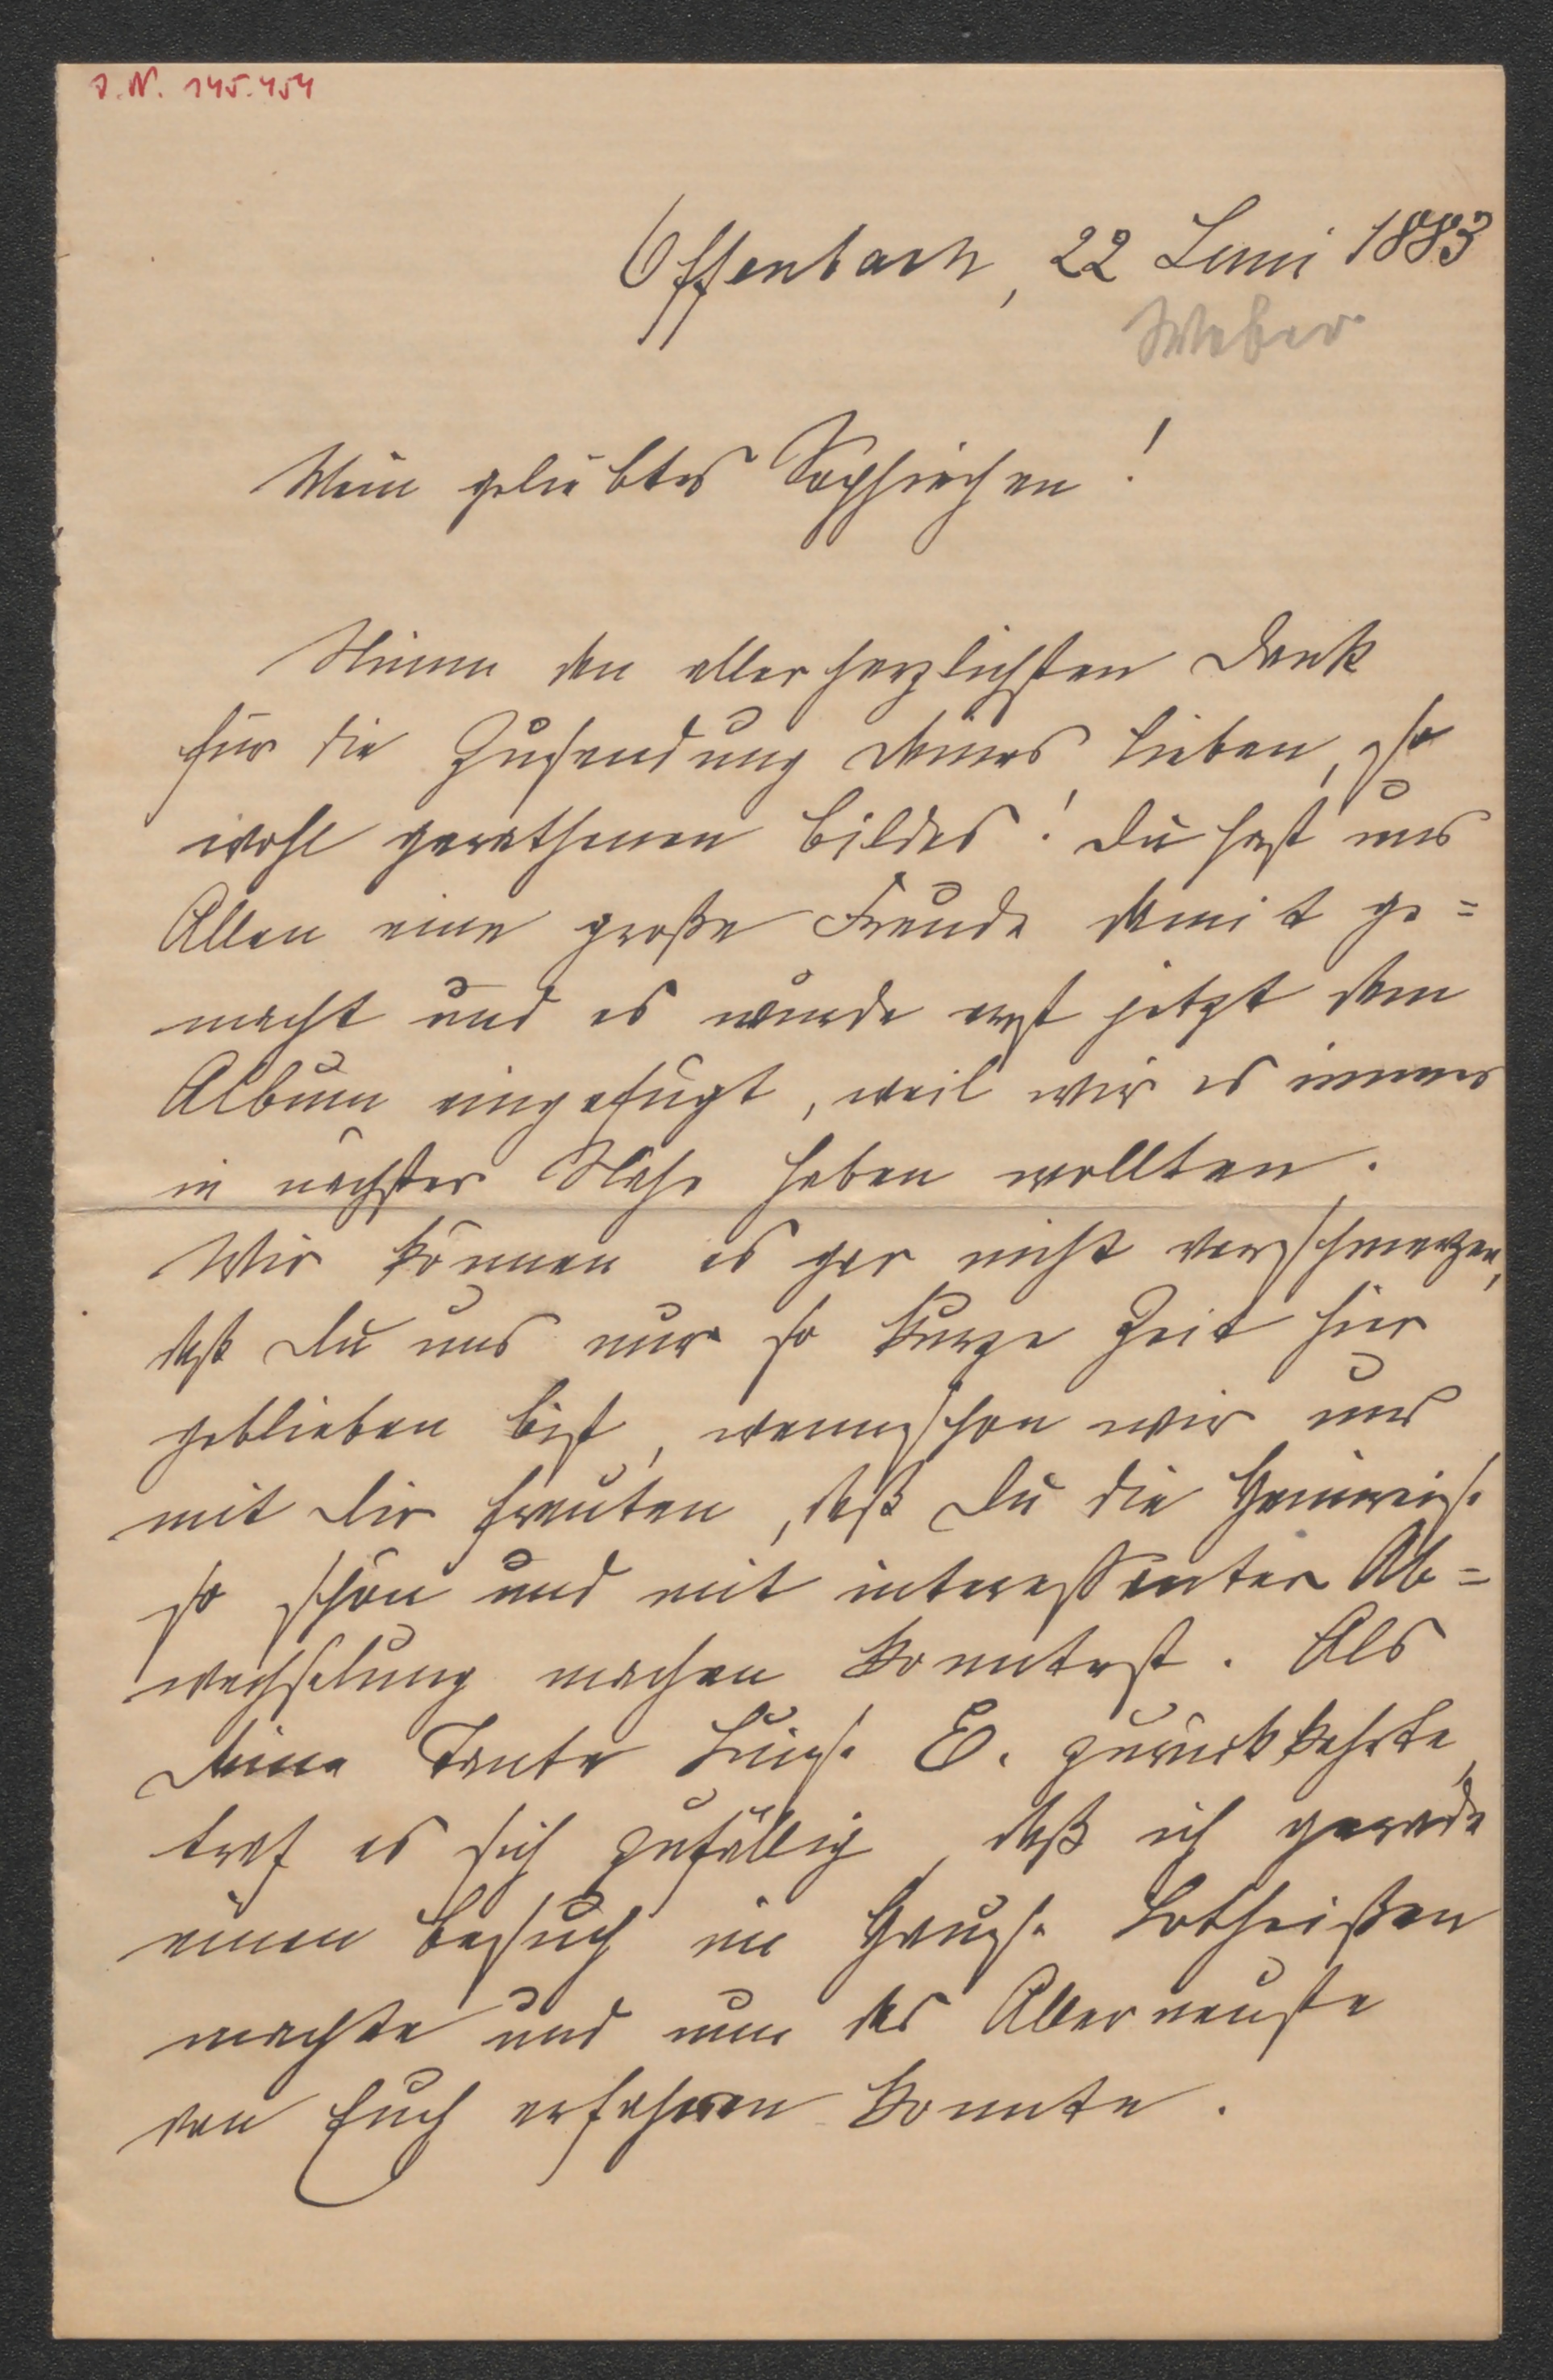 J.N. 145.454
Offenbach, 22 Juni 1883
Weber
Mein geliebtes Sophiechen!
Nimm den allerherzlichsten Dank
für die Zusendung Deines lieben, so
wohl gerathenen Bildes! Du hast uns
Allen eine große Freude damit ge=
macht und es wurde erst jetzt dem
Album eingefügt, weil wir es immer
in nächster Nähe haben wollten.
Wir können es gar nicht verschmerzen,
daß Du uns nur so kurze Zeit hier
geblieben bist, wennschon wir uns
mit Dir freuten, daß Du die Heimreise
so schön und mit interessanter Ab=
wechselung machen konntest. Als
Deine Tante Luise E. zurückkehrte,
traf es sich zufällig, daß ich gerade
einen Besuch im Hause Lotheißen
machte und nun das Allerneuste
von Euch erfahren konnte.